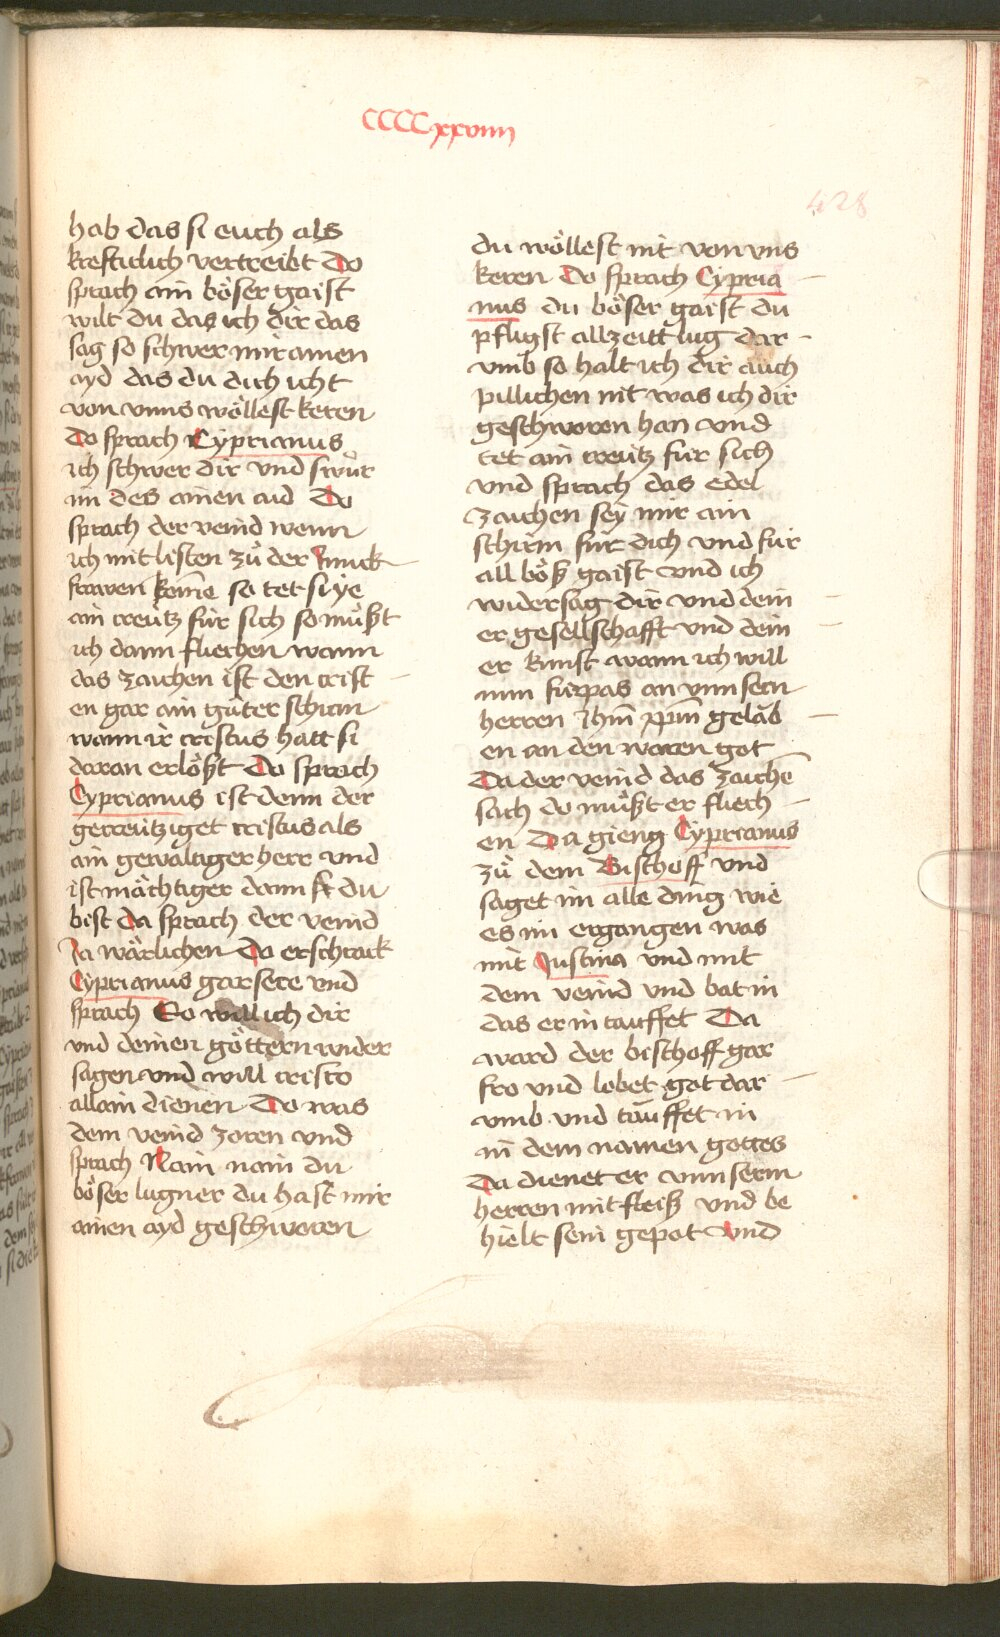 CCCCxxviiij
428
hab das si euch als
krefticlich vertreibt Do
sprach ain böser gaist
wilt du das ich dir das
sag so schwer mir ainen
ayd das du dich icht
von vnns wöllest keren
Do sprach Cyprianus
ich schwer dir vnd swůr
im des ainen aid Do
sprach der veind wenn
ich mit listen zů der Junck
frawen kom̄e so tet si ye
ain creütz für sich so můßt
ich dann fliechen wann
das zaichen ist den crist
en gar ain gůter schirm
wann ir cristus hatt si
daran erlößt Do sprach
Cyprianus ist denn der
gecreütziget cristus als
ain gewaltiger herr vnd
ist mächtiger dann du
bist Da sprach der veind
Ja wärlichen Do erschrack
Cyprianus gar sere vnd
sprach So will ich dir
vnd deinen göttern wider
sagen vnd will cristo
allain dienen Do was
dem veind zoren vnd
sprach Nain nain du
böser lugner du hast mir
ainen ayd geschworen
du wöllest nit von vns
keren Do sprach Cypria
nus du böser gaist du
pfligst allzeitt lug dar
vmb so halt ich dir auch
pillichen nit was ich dir
geschworen han vnd
tet ain creütz für sich
vnd sprach das edel
zaichen sey mir ain
schirm für dich vnd für
all böß gaist vnd ich
widersag dir vnd dein
er gesellschafft vnd dein
er kunst wann ich will
nun fürpas an vnnsern
herren Jhm̄ xp̄m gelǎb
en an den waren got
Da der veind das zaichē
sach do můßt er fliech
en Da gieng Cyprianus
zů dem Bischoff vnd
saget im alle ding wie
es im ergangen was
mit Justina vnd mit
dem veind vnd bat in
das er in tauffet Da
ward der bischoff gar
fro vnd lobet got dar
vmb vnd tauffet in
in dem namen gottes
Da dienet er vnnserm
herren mit fleiß vnd be
hielt sein gepot Vnd